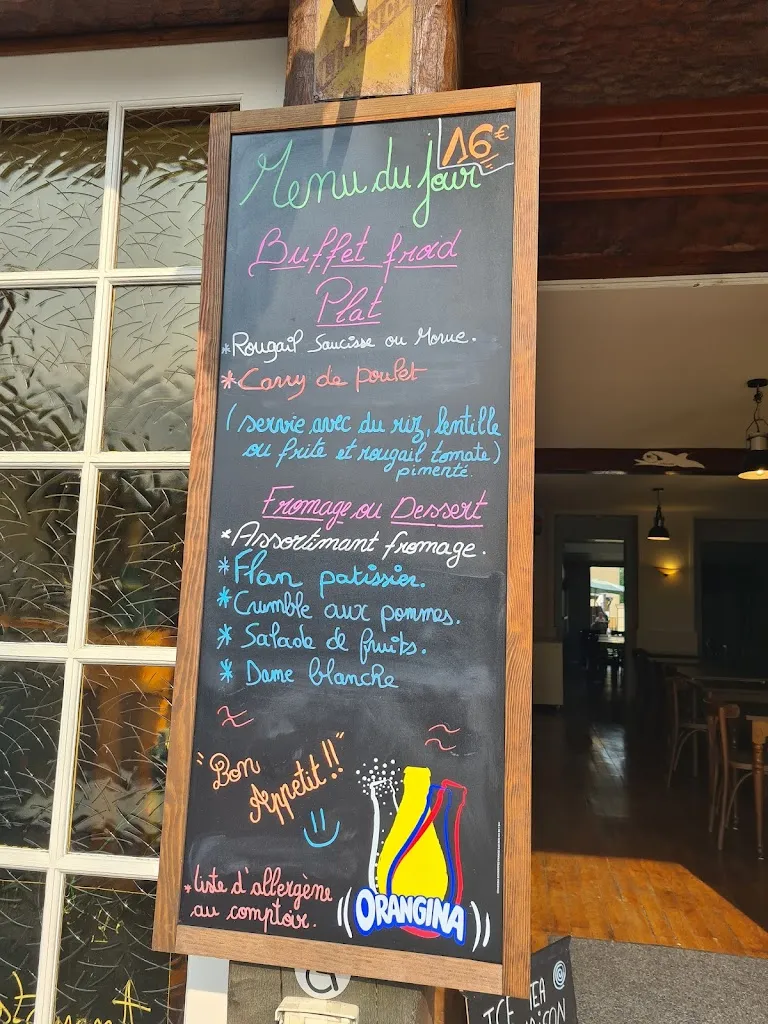 16€
Menu du jour
Buffet froid
Plat
*Rougail Saucisse ou Morue.
*Carry de poulet
(servie avec du riz, lentille
ou frite et rougail tomate)
pimenté
Fromage ou Dessert
*Assortimant fromage.
*Flan patissier.
*Crumble aux pommes.
*Salade de fruits.
*Dame blanche
"Bon
Appetit!!"
*liste d'allergène
au comptoir.
ORANGINA
ICE TEA